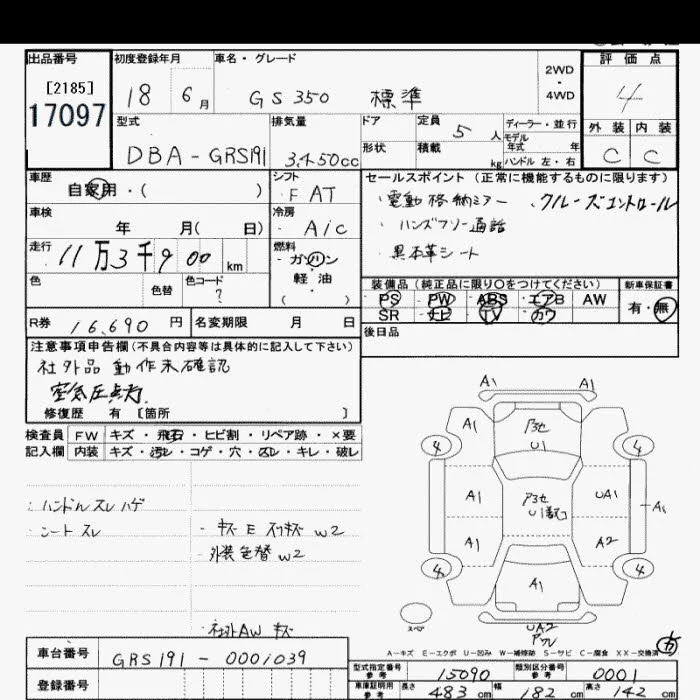 出品番号 初度登録年月 車名・グレード 評価点
[2185] 18 6月 GS350 標準 2WD・4WD 4
17097
型式 排気量 ドア 定員 5人 ディーラー・並行 外装 内装
モデル年式 年
DBA-GRS191 3,450cc 形状 積載 kg ハンドル 左・右 C C
車歴 シフト セールスポイント(正常に機能するものに限ります)
自家用・( ) FAT ・電動格納ミラー ・クルーズコントロール
車検 冷房 ・ハンズフリー通話
年 月( 日) A/C ・黒本革シート
走行 燃料
11万3千900km ガソリン
色 色替 色コード ? 軽油
( )
装備品(純正品に限り○をつけてください) 新車保証書
PS PW ABS エアB AW 有・無
SR ナビ TV カワ
R券 16,690円 名変期限 月 日 後日品
注意事項申告欄(不具合内容等は具体的に記入して下さい)
社外品動作未確認
空気圧点灯
修復歴 有 [箇所 ]
検査員 FW キズ・飛石・ヒビ割・リペア跡・×要
記入欄 内装 キズ・汚レ・コゲ・穴・スレ・キレ・破レ
・ハンドルスレハゲ
・シートスレ
・キズE スリキズ W2
・外装色替 W2
・社外AWキズ
A1 A1
A1 U1
4 4
A1 UA1
A1
A1 A2
4 4
A1
スペア UA2
A-キズ E-エクボ U-凹み W-補修跡 S-サビ C-腐食 XX-交換済
車台番号 GRS191-0001039
登録番号
型式指定番号 参考 15090 類別区分番号 参考 0001
車庫証明用 参考 長さ 483cm 幅 182cm 高さ 142cm